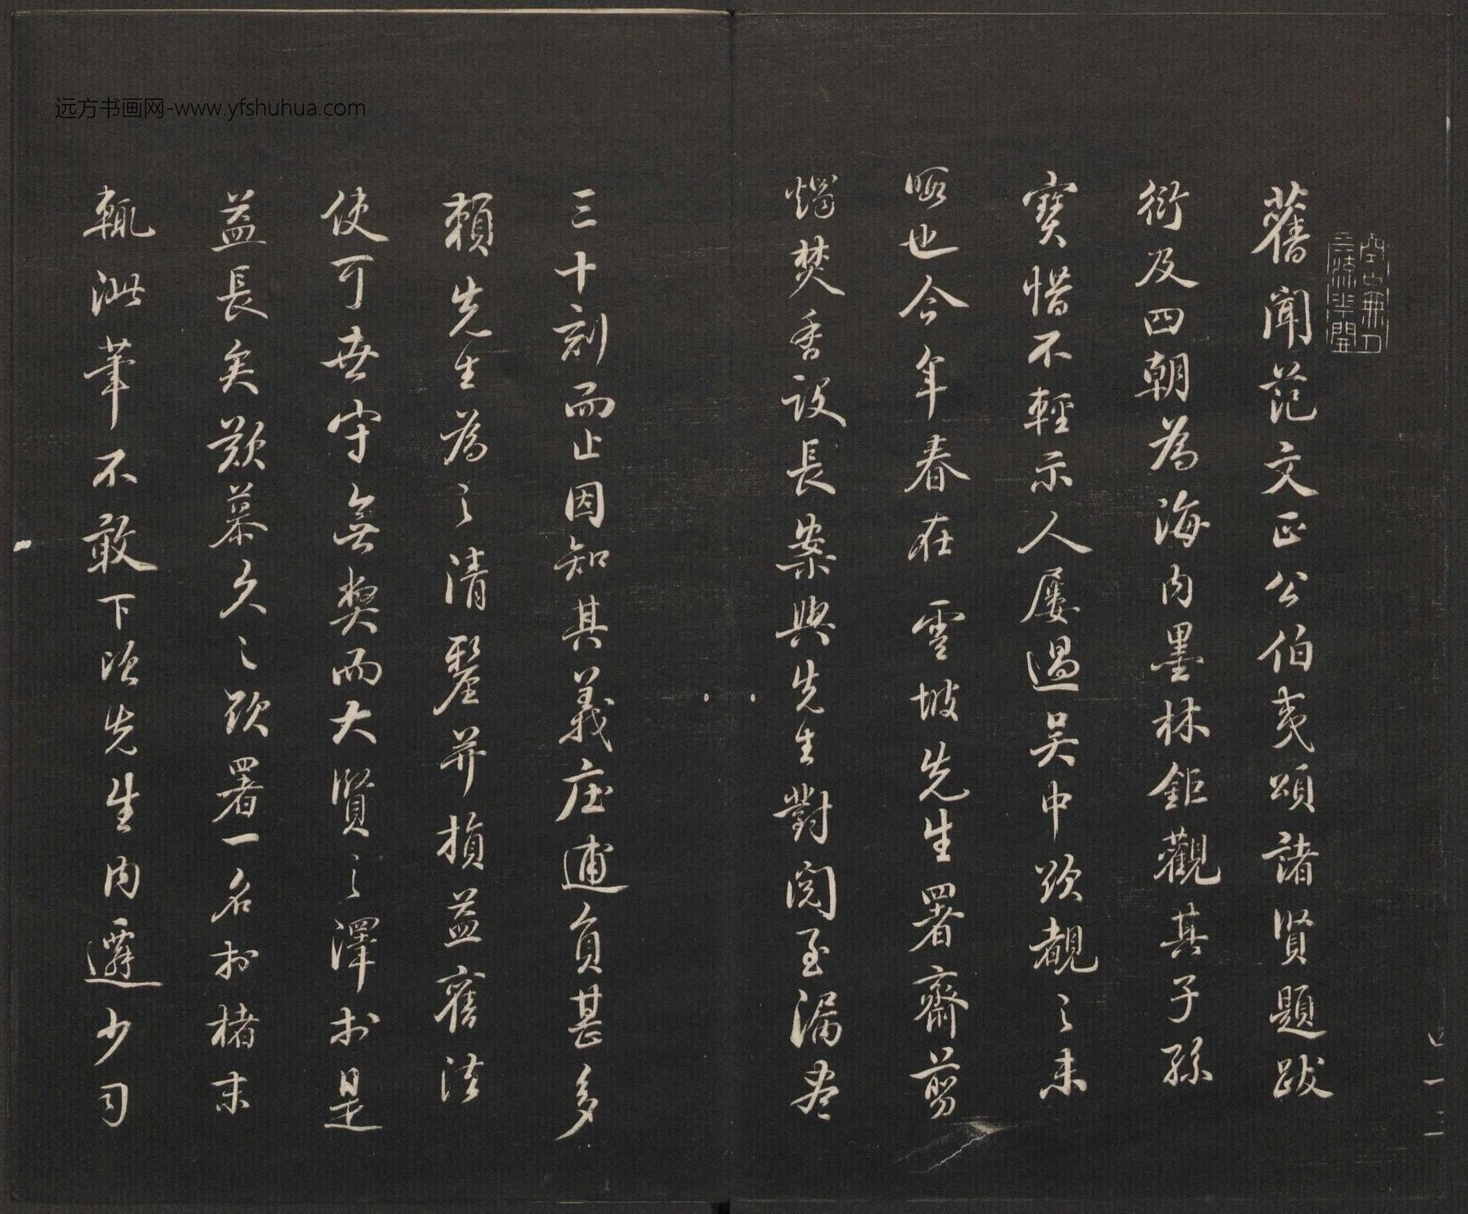 舊聞范文正公伯夷頌諸賢題跋
衍及四朝為海內墨林鉅觀其子孫
寳惜不輕示人屢過吴中欲覩之未
暇也今年春在雲坡先生署齋剪
燭焚香設長案與先生對閲至漏盡
三十刻而止因知其義庄逋負甚多
賴先生為之清釐并損益舊法
使可世守無獘而大賢之澤於是
益長矣歎慕久之欲署一名於楮末
輒泚筆不敢下次先生內遷少司
远方书画网-www.yfshuhua.com